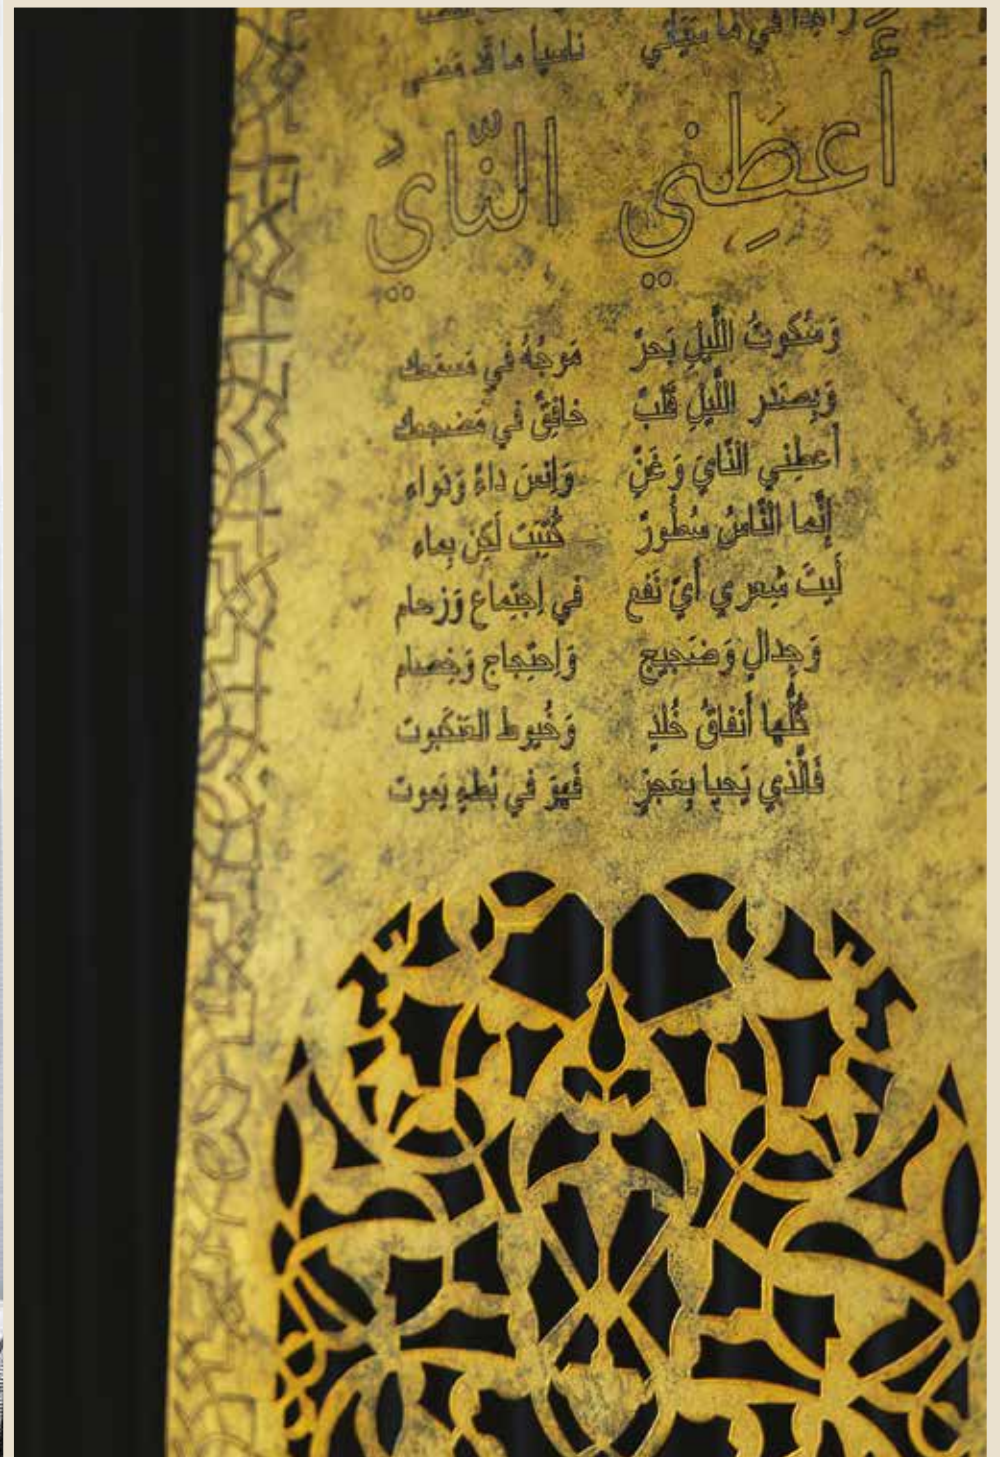 زاهداً في ما سيأتي
ناسياً ما قد مضى
أَعطِني النّايَ
وَسُكوتُ اللَّيلِ بَحرٌ مَوجُهُ في مَسمَعك
وَبِصَدرِ اللَّيلِ قَلبٌ خافِقٌ في مَضجعك
أَعطِني النّايَ وَغَنِّ وَاِنسَ داءً وَدَواء
إِنَّما النّاسُ سُطورٌ كُتِبَت لَكِن بِماء
لَيتَ شِعري أَيّ نَفعٍ في اِجتِماع وَزحام
وَجِدالٍ وَضَجيج وَاِحتِجاج وَخِصام
كُلُّها أَنفاقُ خُلدٍ وَخُيوط العَنكَبوت
فَالَّذي يَحيا بِعَجزٍ فَهوَ في بُطءٍ يَموت